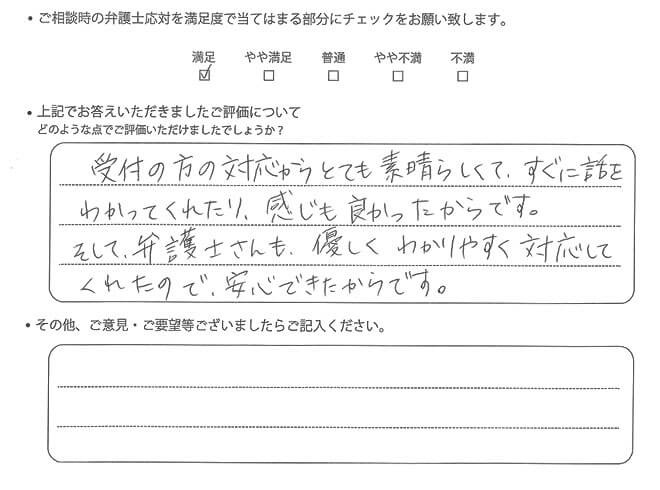 ・ご相談時の弁護士応対を満足度で当てはまる部分にチェックをお願い致します。
満足 やや満足 普通 やや不満 不満
☑ □ □ □ □
・上記でお答えいただきましたご評価について
どのような点でご評価いただけましたでしょうか？
受付の方の対応からとても素晴らしくて、すぐに話を
わかってくれたり、感じも良かったからです。
そして、弁護士さんも、優しく わかりやすく対応して
くれたので、安心できたからです。
・その他、ご意見・ご要望等ございましたらご記入ください。